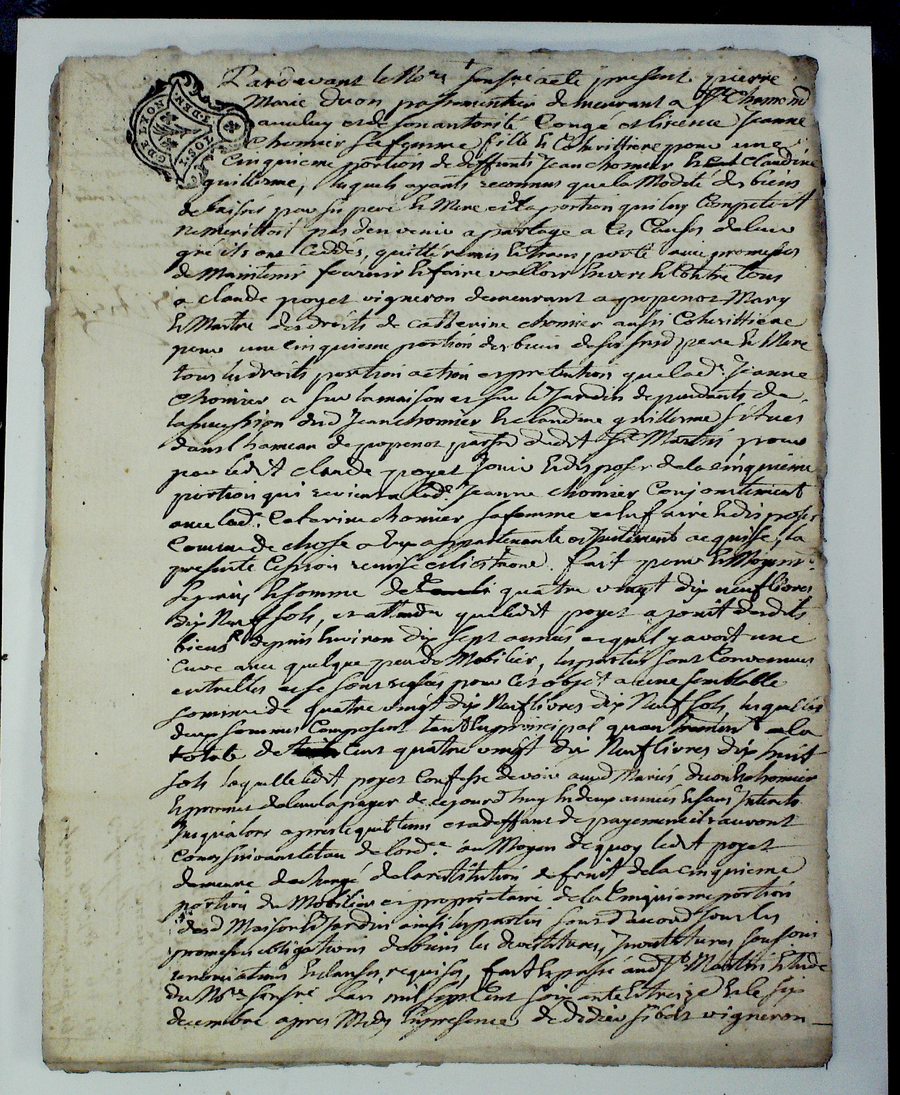 GDE LYON
2 DEN
1 SOL
Pardevant le No.re soussigné acte present pierre
Marie duon passementier demeurant a St Chamond
auquel et de son autorité Congé et licence Jeanne
Chomier sa femme fille & Cohérittiere pour une
Cinquieme portion de deffunts Jean chomier & Claudine
guillerme, lequels ayants reconnus que la Modeté des biens
delaissés par ses pere & Mere et la portion qui luy Competoit
ne meritoit pas d'en venir a partage a Ces Causes de leur
gré ils ont Ceddés, quitté remis & transporté avec promesses
de Maintenir fournir & faire valloir Envers & Contre tous
a claude poyet vigneron demeurant a popenot Mary
& Maitre des droits de catterine chomier aussi Coherittiere
pour une cinquieme portion des biens de sesd pere & Mere
tous les droits portion action et pretention que lad. Jeanne
Chomier a sur la maison et sur le Jardin dependants de
la succession desd Jean chomier & claudine guillerme situés
dans l'hameau de popenot parsse dudit St Martin pour
par ledit claude poyet Jouir & disposer de la cinquieme
portion qui revient a lad. Jeanne chomier Conjointement
avec lad. Catarine chomier sa femme et en faire & disposer
Comme de chose a eux appartenante et Justement acquise, la
presente Cession remise est faitte pour & Moyent
le prix & somme de quatre vingt dix neuf livres
dix Neuf sols, et attendu que ledit poyet a jouit desdits
biens depuis Environ dix sept années et qu'il y avoit une
Cuve avec quelque peu de Mobilier, les parties sont Convenues
entrelles et se sont reglés pour cet objet a une semblable
somme de quatre vingt dix Neuf livres dix Neuf sols, lesquelles
deux sommes Composent tant En principal qu'en a la
totale de Cent quatre vingt dix Neuf livres dix huit
sols laquelle ledit poyet Confesse devoir auxd Mariés duon & chomier
& promet de leur la payer de cejourd'huy En deux années & sans Interets
Jusqu'alors apres lequel tems et a deffaut de payement ils auront
Cours suivant le tau de l'ord.ce au Moyen de quoy ledit poyet
demeure dechargé de la restitution de fruit de la cinquieme
portion du Mobilier et proprietaire de la Cinquieme portion
desd Maison & Jardin ainsi les parties sont d'accord sous les
promesses obligations de biens les devetitures, Invetitures soumissions
renonciations & clauses requises, fait & passé aud St Martin Etude
du No.re soussigné L'an mil sept Cent soixante & treize & le six
decembre apres Midy En presence de didier sibert vigneron